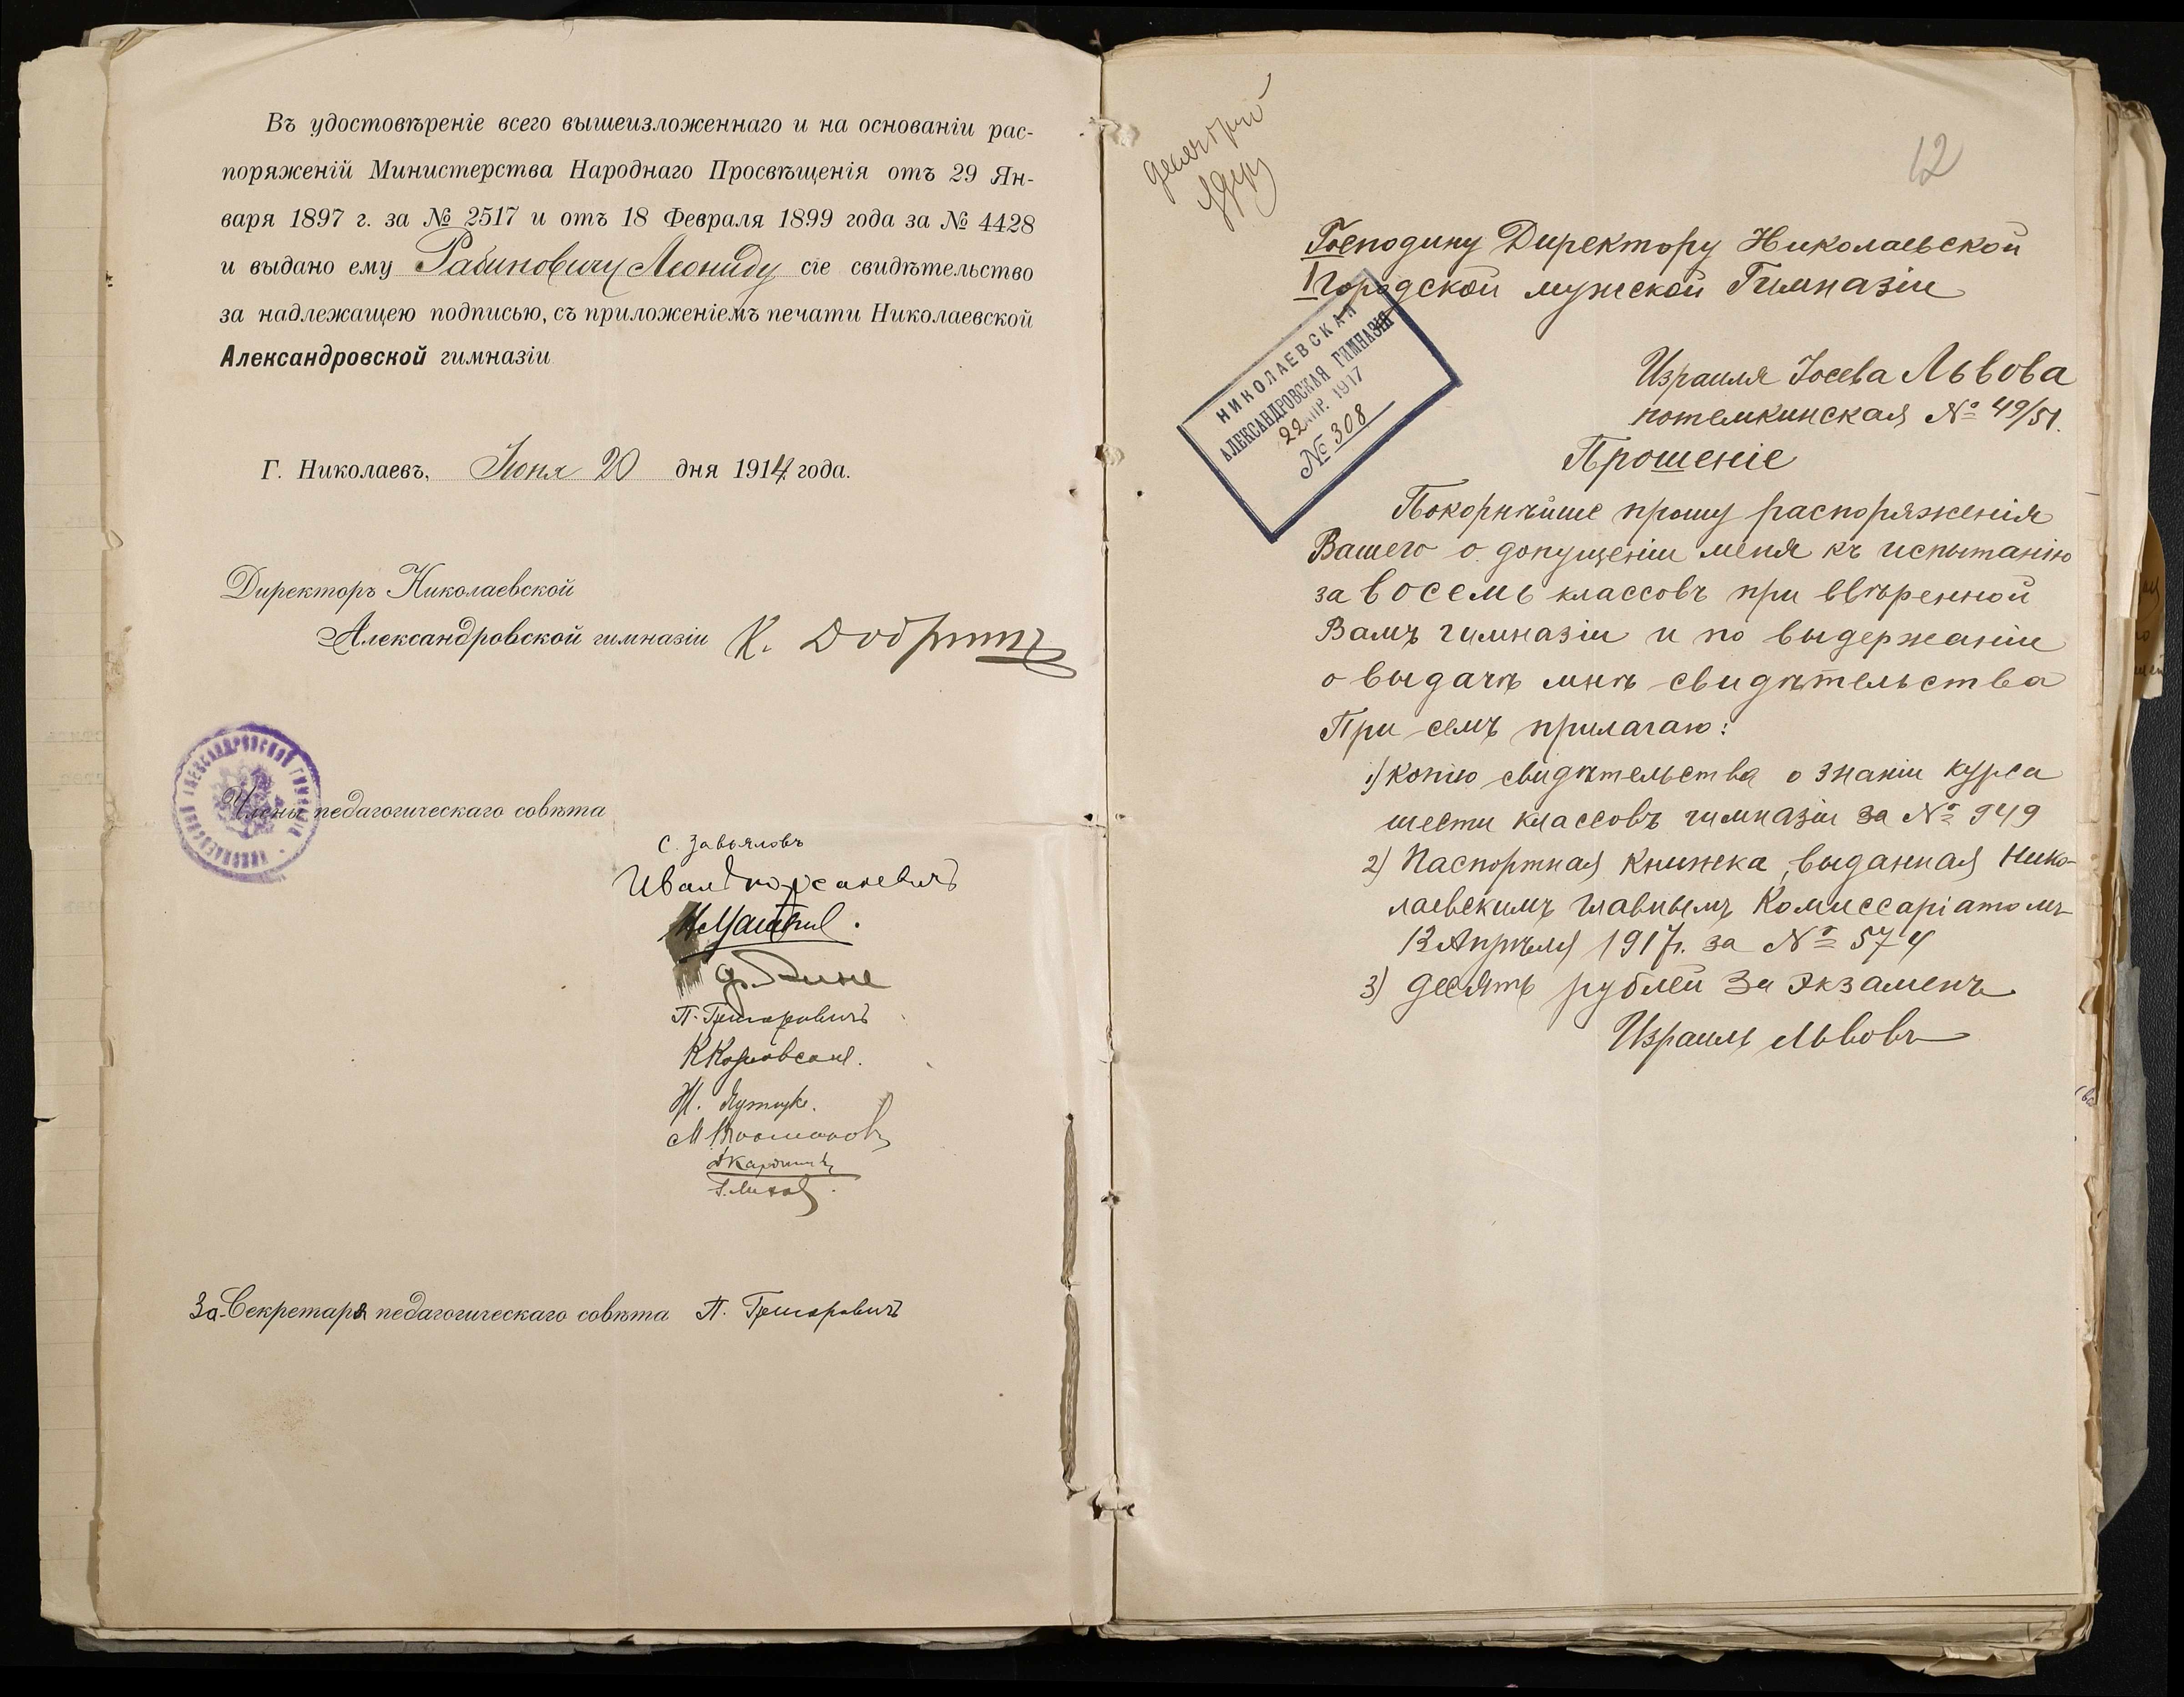 Въ удостовѣреніе всего вышеизложеннаго и на основаніи рас-
поряженій Министерства Народнаго Просвѣщенія отъ 29 Ян-
варя 1897 г. за № 2517 и отъ 18 Февраля 1899 года за № 4428
и выдано ему Рабиновичу Леониду сіе свидѣтельство
за надлежащею подписью, съ приложеніемъ печати Николаевской
Александровской гимназіи
Г. Николаевъ, Іюня 20 дня 1914 года.
Директоръ Николаевской
Александровской гимназіи К.
Члены педагогическаго совѣта
С. Завьяловъ
П. Григоровичъ
За Секретаря педагогическаго совѣта П. Григоровичъ
12
Господину Директору Николаевской
1 Городской мужской Гимназіи
НИКОЛАЕВСКАЯ
АЛЕКСАНДРОВСКАЯ ГИМНАЗІЯ
22 АПР. 1917
№ 308
Израиля Іосева Львова
потемкинская № 49/51.
Прошеніе
Покорнѣйше прошу распоряженія
Вашего о допущеніи меня къ испытанію
за восемь классовъ при ввѣренной
Вамъ гимназіи и по выдержаніи
о выдачѣ мнѣ свидѣтельства
При семъ прилагаю:
1) копію свидѣтельства о знаніи курса
шести классовъ гимназіи за № 949
2) Паспортная Книжка, выданная Нико-
лаевскимъ главнымъ Комиссаріатомъ
12 Апрѣля 1917г. за № 574
3) десять рублей За Экзаменъ
Израиль Львовъ